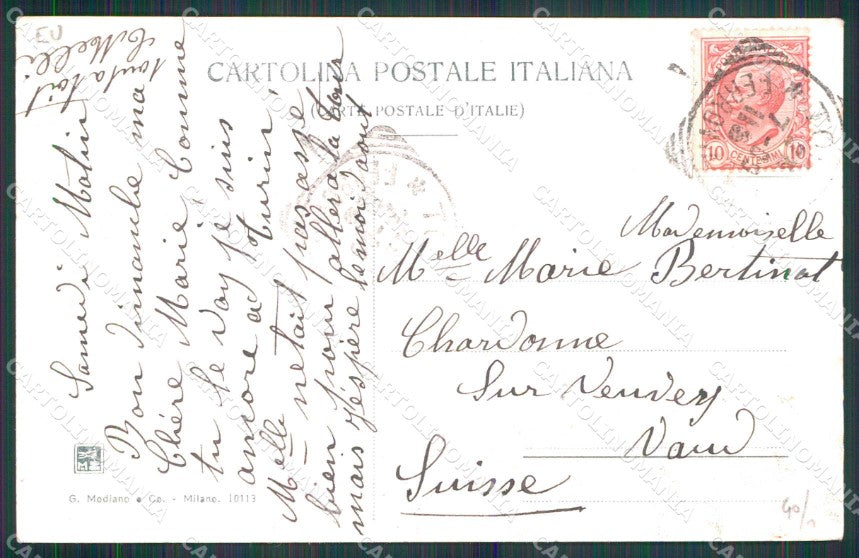 CARTOLINA POSTALE ITALIANA
(CARTE POSTALE D'ITALIE)
Samedi Matin
Bon Dimanche ma
Chére Marie, Comme
tu le voy je suis
ancore a Turin,
Melle netait pas assé
bien pour aller a la
mais j'éspère le moi d'aout
tout a toi
EU
Mademoiselle
Melle Marie Bertinat
Chardonne
Sur Vevey
Vaud
Suisse
10 CENTESIMI 10
G. Modiano e Co. - Milano. 10113
40/
CARTOLINOMANIA